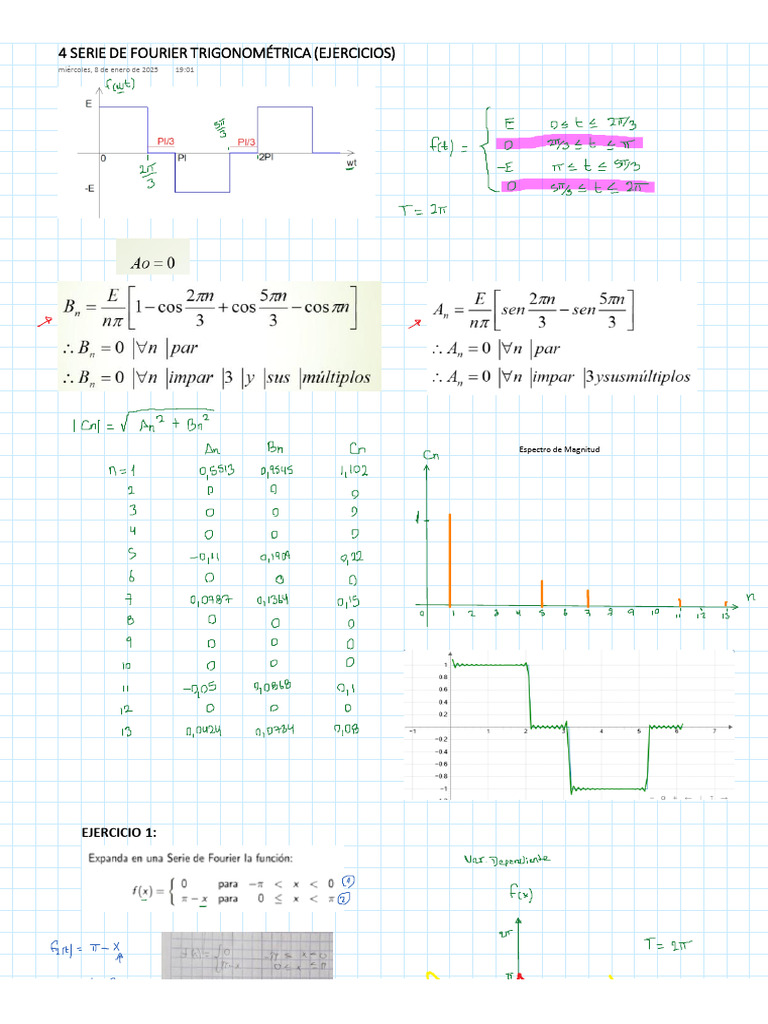 4 SERIE DE FOURIER TRIGONOMÉTRICA (EJERCICIOS)
miércoles, 8 de enero de 2025 19:01
f(wt)
E
5π/3
PI/3 PI/3
0 PI 2PI
2π/3
wt
-E
f(t) = { E 0 ≤ t ≤ 2π/3
0 2π/3 ≤ t ≤ π
-E π ≤ t ≤ 5π/3
0 5π/3 ≤ t ≤ 2π
T = 2π
Ao = 0
B_n = E/nπ [1 − cos 2πn/3 + cos 5πn/3 − cos πn]
∴ B_n = 0 |∀n |par
∴ B_n = 0 |∀n |impar |3 |y |sus |múltiplos
A_n = E/nπ [sen 2πn/3 − sen 5πn/3]
∴ A_n = 0 |∀n |par
∴ A_n = 0 |∀n |impar |3ysusmúltiplos
|Cn| = √(An² + Bn²)
An Bn Cn
n = 1 0,5513 0,9545 1,102
2 0 0 0
3 0 0 0
4 0 0 0
5 -0,11 0,1909 0,22
6 0 0 0
7 0,0787 0,1364 0,15
8 0 0 0
9 0 0 0
10 0 0 0
11 -0,05 0,0868 0,1
12 0 0 0
13 0,0424 0,0734 0,08
Espectro de Magnitud
Cn
1
n
0 1 2 3 4 5 6 7 8 9 10 11 12 13
1
0.8
0.6
0.4
0.2
−1 1 2 3 4 5 6 7
−0.2
−0.4
−0.6
−0.8
−1
EJERCICIO 1:
Expanda en una Serie de Fourier la función:
f(x) = { 0 para −π < x < 0 (1)
π − x para 0 ≤ x < π (2)
f₂(t) = π - x
Var. Dependiente
f(x)
2π
π
T = 2π